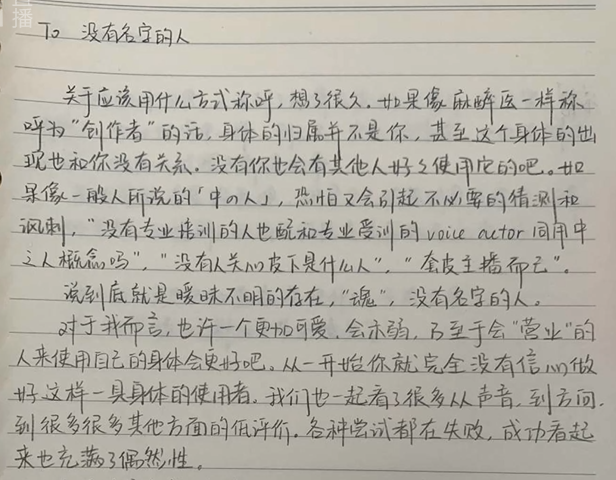 播
To 没有名字的人
关于应该用什么方式称呼，想了很久。如果像麻醉医一样称
呼为“创作者”的话，身体的归属并不是你，甚至这个身体的出
现也和你没有关系。没有你也会有其他人好好使用它的吧。如
果像一般人所说的「中の人」，恐怕又会引起不必要的猜测和
讽刺，“没有专业培训的人也配和专业受训的voice actor同用中
之人概念吗”，“没有人关心皮下是什么人”，“套皮主播而已”。
说到底就是暧昧不明的存在，“魂”，没有名字的人。
对于我而言，也许一个更加可爱，会示弱，乃至于会“营业”的
人来使用自己的身体会更好吧。从一开始你就完全没有信心做
好这样一具身体的使用者。我们也一起看了很多从声音，到方向，
到很多很多其他方面的低评价。各种尝试都在失败，成功看起
来也充满了偶然性。